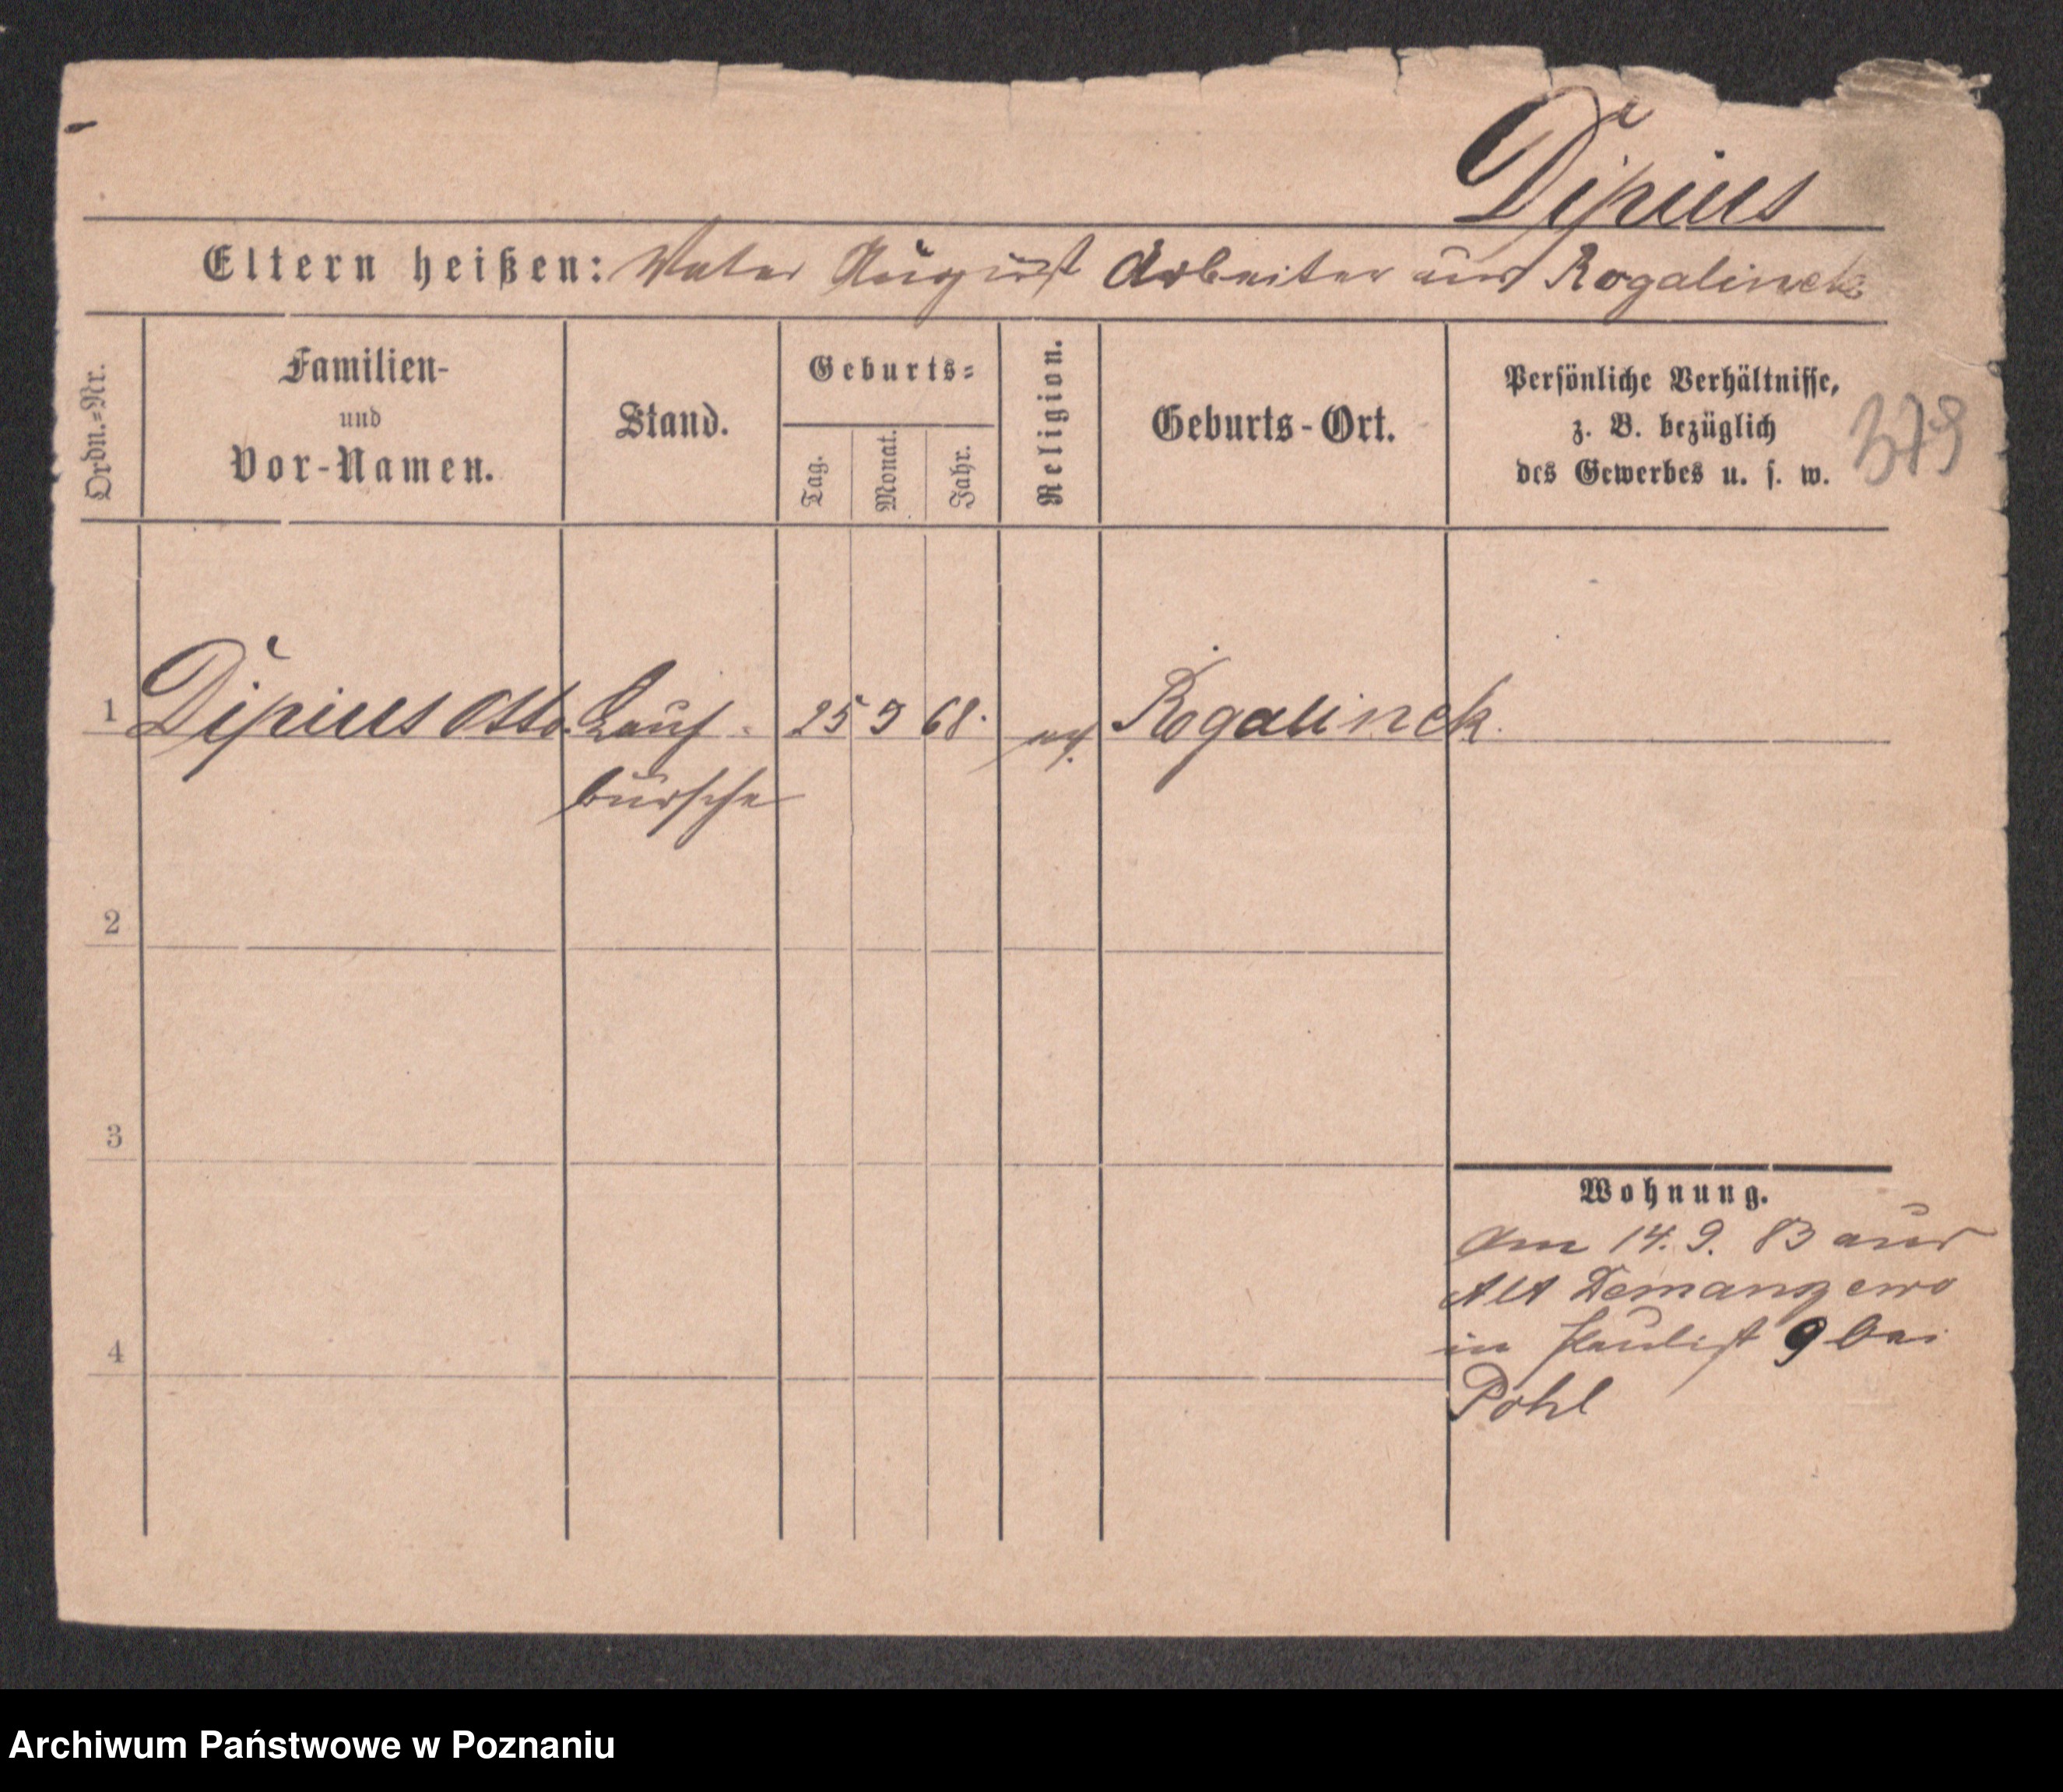 Dipius
Eltern heißen: Vater August Arbeiter aus Rogalinek
Ordn.=Nr.
Familien-
und
Vor-Namen.
Stand.
Geburts=
Tag.
Monat.
Jahr.
Religion.
Geburts-Ort.
Persönliche Verhältnisse,
z. B. bezüglich
des Gewerbes u. s. w.
379
1 Dipius Otto. Lauf- 25 9 68. ev. Rogalinek.
bursche
2
3
4
Wohnung.
Am 14. 9. 83 aus
Alt Demanczewo
in Paulist 9 bei
Pohl
Archiwum Państwowe w Poznaniu